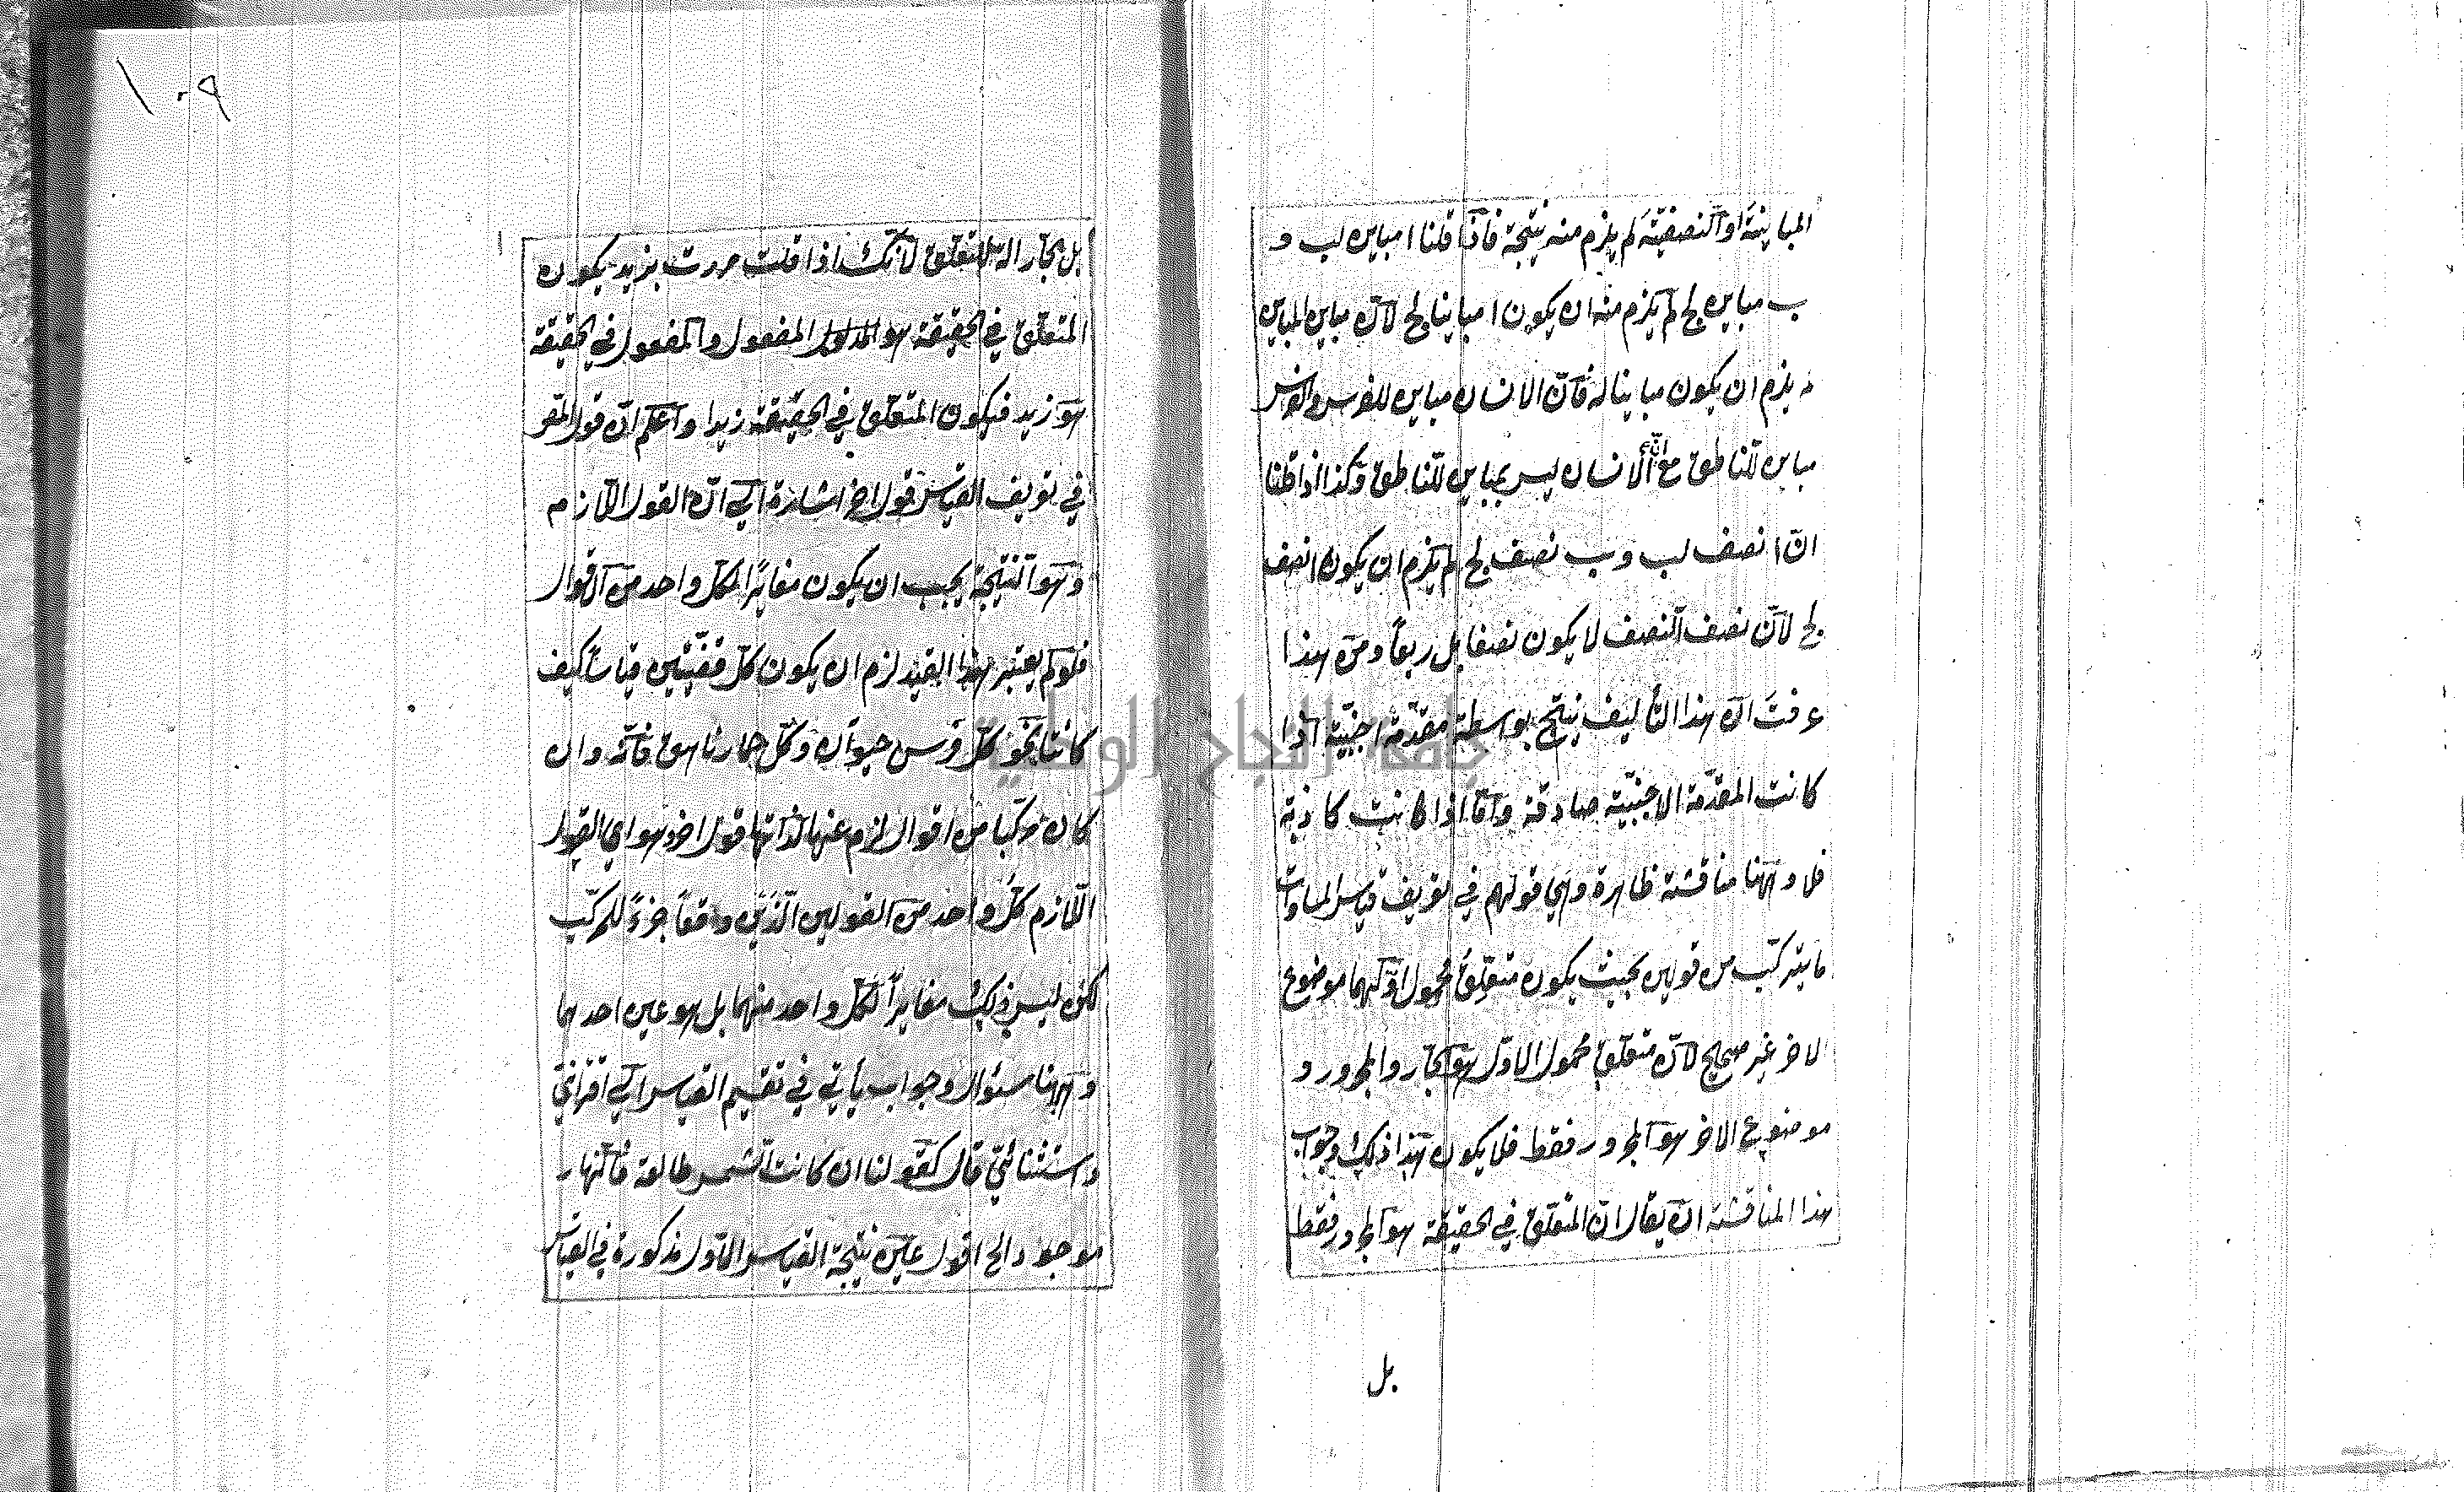 المباينة او النصفية لم يلزم منه نتيجة فاذا قلنا ا مباين لب و
ب مباين لج لم يلزم منه ان يكون ا مباينا لج لان مباين المباين
يلزم ان يكون مباينا له فان الانسان مباين للفرس والفرس
مباين للناطق مع ان الانسان ليس بمباين للناطق وكذا اذا قلنا
ان ا نصف لب وب نصف لج لم يلزم ان يكون ا نصف
لج لان نصف النصف لا يكون نصفا بل ربعا ومن هذا
عرفت ان هذا التأليف ينتج بواسطة مقدمة اجنبية اذا
كانت المقدمة الاجنبية صادقة واما اذا كانت كاذبة
فلا وههنا مناقشة ظاهرة وهي قولهم في تعريف قياس المساوات
ما يتركب من قولين بحيث يكون متعلق محمول اولهما موضوع
الاخر غير صحيح لان متعلق محمول الاول هو الجار والمجرور و
موضوع الاخر هو المجرور فقط فلا يكون هذا ذلك وجواب
هذا المناقشة ان يقال ان المتعلق في الحقيقة هو المجرور فقط
بل
١٠٩
بل الجار آلة للتعلق لانك اذا قلت مررت بزيد يكون
المتعلق في الحقيقة هو المفعول والمفعول في الحقيقة
هو زيد فيكون المتعلق في الحقيقة زيدا واعلم ان قول المص
في تعريف القياس قول اخر اشارة الى ان القول اللازم
وهو النتيجة يجب ان يكون مغايرا لكل واحد من الاقوال
فلو لم يعتبر هذا القيد لزم ان يكون كل قضيتين قياسا كيف
كانتا نحو كل فرس حيوان وكل حمار ناهق فانه وان
كان مركبا من اقوال لزم عنها لذاتها قول اخر وهو اي القول
اللازم كل واحد من القولين الذين واقعا جزءً للمركب
لكن ليس ذلك مغايرا لكل واحد منهما بل هو عين احدهما
وههنا سئوال وجواب يأتي في تقسيم القياس الى اقتراني
واستثنائي قال كقولنا ان كانت الشمس طالعة فالنهار
موجود الخ اقول عين نتيجة القياس الاول مذكورة في القياس
جامعة النجاح الوطنية